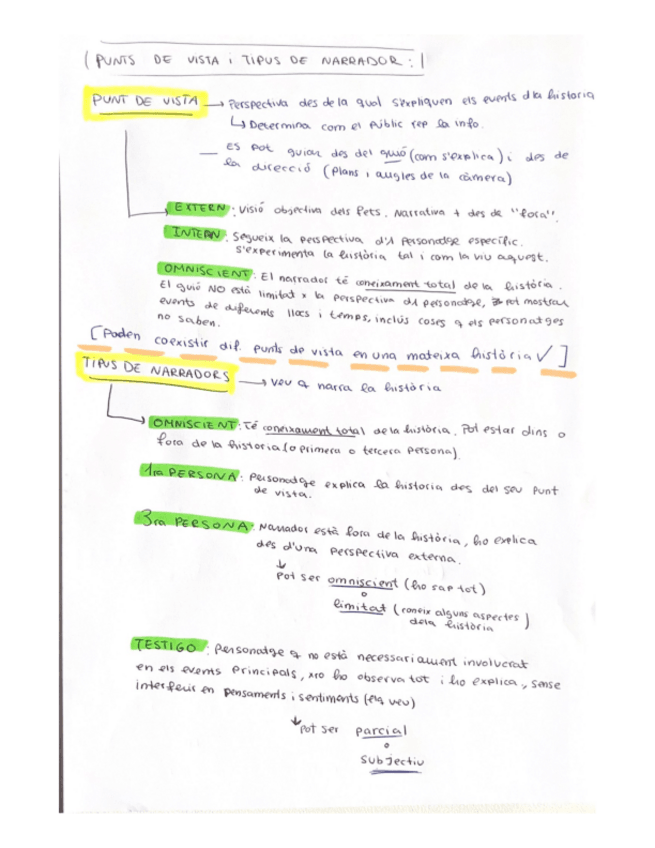 ( PUNTS DE VISTA i TIPUS DE NARRADOR : |
PUNT DE VISTA → Perspectiva des de la qual s'expliquen els events d la historia
↳ Determina com el públic rep la info.
— es pot guiar des del guió (com s'explica) i des de
la direcció (plans i angles de la càmera)
EXTERN : Visió objectiva dels fets. Narrativa + des de "fora".
INTERN : Segueix la perspectiva d'1 personatge específic.
S'experimenta la història tal i com la viu aquest.
OMNISCIENT : El narrador té coneixament total de la història.
El guió NO està limitat x la perspectiva d1 personatge, pot mostrar
events de diferents llocs i temps, inclús coses q els personatges
no saben.
[ Poden coexistir dif. punts de vista en una mateixa història ✓ ]
TIPUS DE NARRADORS → veu q narra la història
OMNISCIENT : Té coneixament total de la història. Pot estar dins o
fora de la historia (o primera o tercera persona).
1ra PERSONA : Personatge explica la historia des del seu punt
de vista.
3ra PERSONA : Narrador està fora de la història, ho explica
des d'una perspectiva externa.
↓
Pot ser omniscient (ho sap tot)
o
limitat (coneix alguns aspectes)
de la història
TESTIGO : Personatge q no està necessariament involucrat
en els events principals, xro ho observa tot i ho explica, sense
interferir en pensaments i sentiments (ells veu)
↓ Pot ser parcial
o
subjectiu